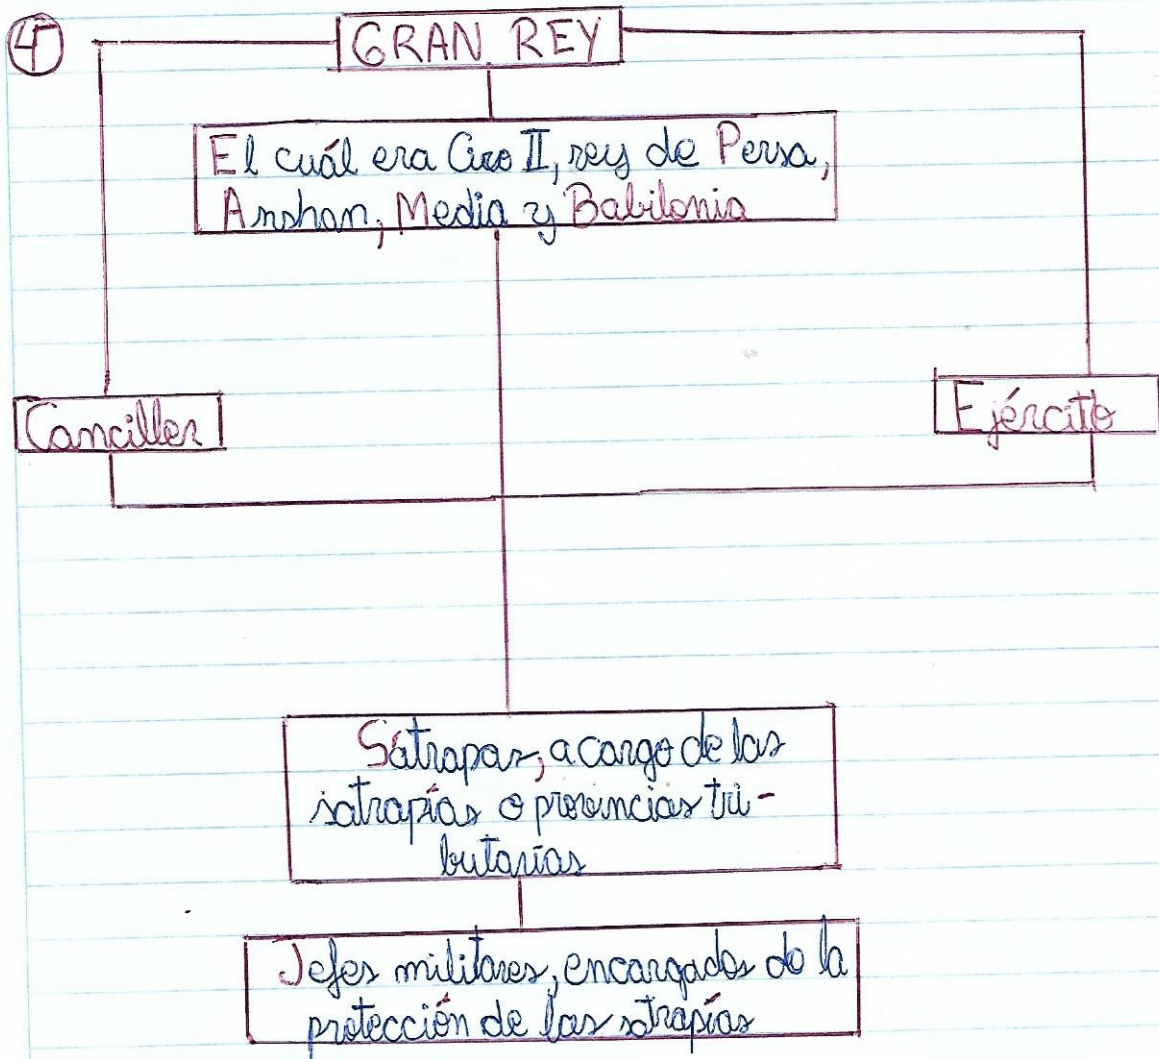 4
GRAN REY
El cuál era Ciro II, rey de Persa,
Anshan, Media y Babilonia
Canciller
Ejército
Sátrapas, a cargo de las
satrapías o provincias tri-
butarias
Jefes militares, encargados de la
protección de las satrapías